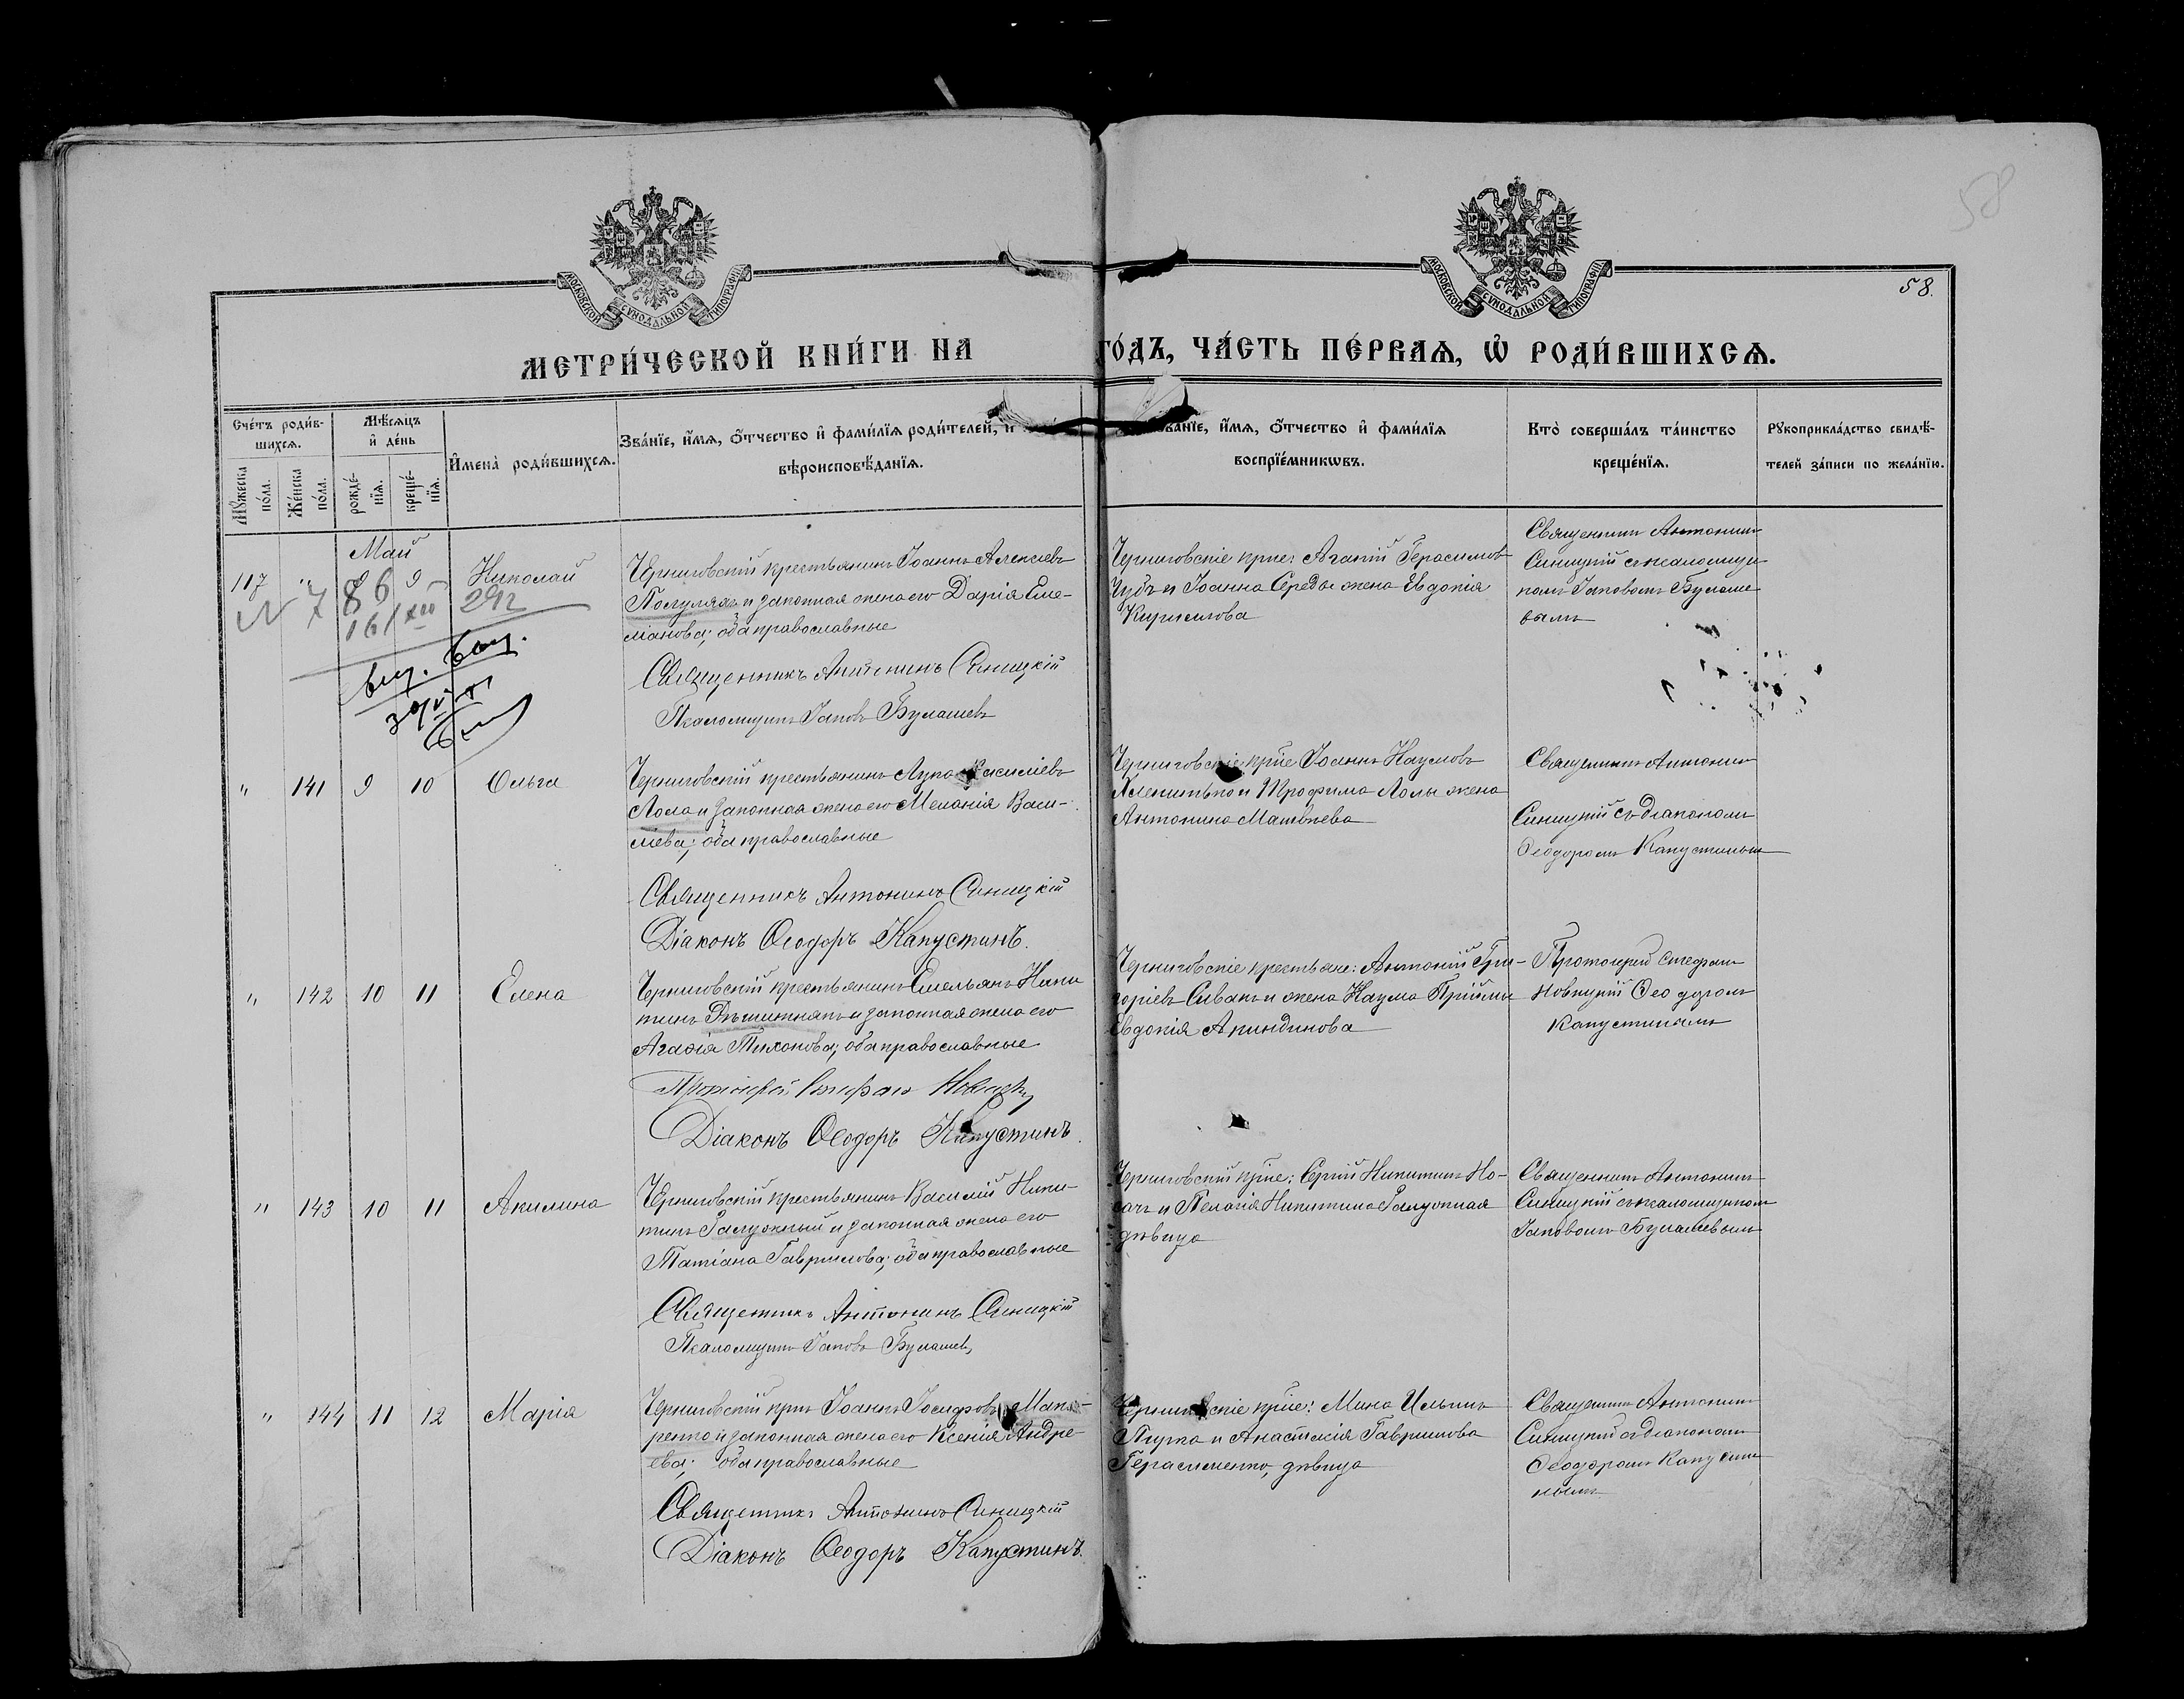 58
58.
МОСКОВСКОЙ СѴНОДАЛЬНОЙ ТИПОГРАФІИ
МОСКОВСКОЙ СѴНОДАЛЬНОЙ ТИПОГРАФІИ
МЕТРИ́ЧЕСКОЙ КНИ́ГИ НА ГО́ДЪ, ЧА́СТЬ ПЕ́РВАѦ, Ѡ҆ РОДИ́ВШИХСѦ.
Сче́тъ роди́в-
шихсѧ.
Мꙋ́жеска по́ла.
Же́нска по́ла.
Мѣ́сѧцъ
и҆ де́нь
рожде́-
нїѧ.
креще́-
нїѧ.
И҆мена̀ роди́вшихсѧ.
Зва́нїе, и҆́мѧ, ѻ҆́тчество и҆ фами́лїѧ роди́телей, и҆
вѣроисповѣ́данїѧ.
Зва́нїе, и҆́мѧ, ѻ҆́тчество и҆ фами́лїѧ
воспрїе́мникѡвъ.
Кто̀ соверша́лъ та́инство
креще́нїѧ.
Рꙋкоприкла́дство свидѣ́-
телей за́писи по жела́нїю.
Май
117 " 8 9 Николай
Черниговскій крестьянинъ Іоаннъ Алексіевъ
Полулях и законная жена его Дарія Еме-
ліанова; оба православные
Священникъ Антонинъ Синицкій
Псаломщикъ Іаковъ Булашевъ
Черниговскіе кр-не: Агапій Герасимов
Чубъ и Іоанна Середы жена Евдокія
Кириллова
Священникъ Антонинъ
Синицкій съ псаломщи-
комъ Іаковомъ Булаше-
вымъ
" 141 9 10 Ольга
Черниговскій крестьянинъ Лука Василіевъ
Лола и законная жена его Меланія Васи-
ліева; оба православные
Священникъ Антонинъ Синицкій
Діаконъ Ѳеодоръ Капустинъ.
Черниговскіе кр-не Іоаннъ Наумовъ
и Трофима Лолы жена
Антонина Матвѣева
Священникъ Антонинъ
Синицкій съ діакономъ
Ѳеодоромъ Капустинымъ
" 142 10 11 Елена
Черниговскій крестьянинъ Емельянъ Ники-
тинъ и законная жена его
Агафія Тихонова; оба православные
Протоіерей Стефанъ Новицкій
Діаконъ Ѳеодоръ Капустинъ.
Черниговскіе крестьяне: Антоній Гри-
горіевъ Сивакъ и жена Наума Приймы
Евдокія Акиндинова
Протоіерей Стефанъ
Новицкій Ѳеодоромъ
Капустинымъ
" 143 10 11 Акилина
Черниговскій крестьянинъ Василій Ники-
тинъ Галушный и законная жена его
Татіана Гаврилова; оба православные
Священникъ Антонинъ Синицкій
Псаломщикъ Іаковъ Булашевъ
Черниговскій кр-не: Сергій Никитинъ Но-
сачъ и Пелагія Никитина Галушная
дѣвица
Священникъ Антонинъ
Синицкій съ псаломщикомъ
Іаковомъ Булашевымъ
" 144 11 12 Марія
Черниговскій кр-нъ Іоаннъ Іосифовъ Мака-
ренко и законная жена его Ксенія Андре-
ева; оба православные
Священникъ Антонинъ Синицкій
Діаконъ Ѳеодоръ Капустинъ.
Черниговскіе кр-не: Мина Ильинъ
и Анастасія Гаврилова
Герасименко, дѣвица
Священникъ Антонинъ
Синицкій съ діакономъ
Ѳеодоромъ Капусти-
нымъ